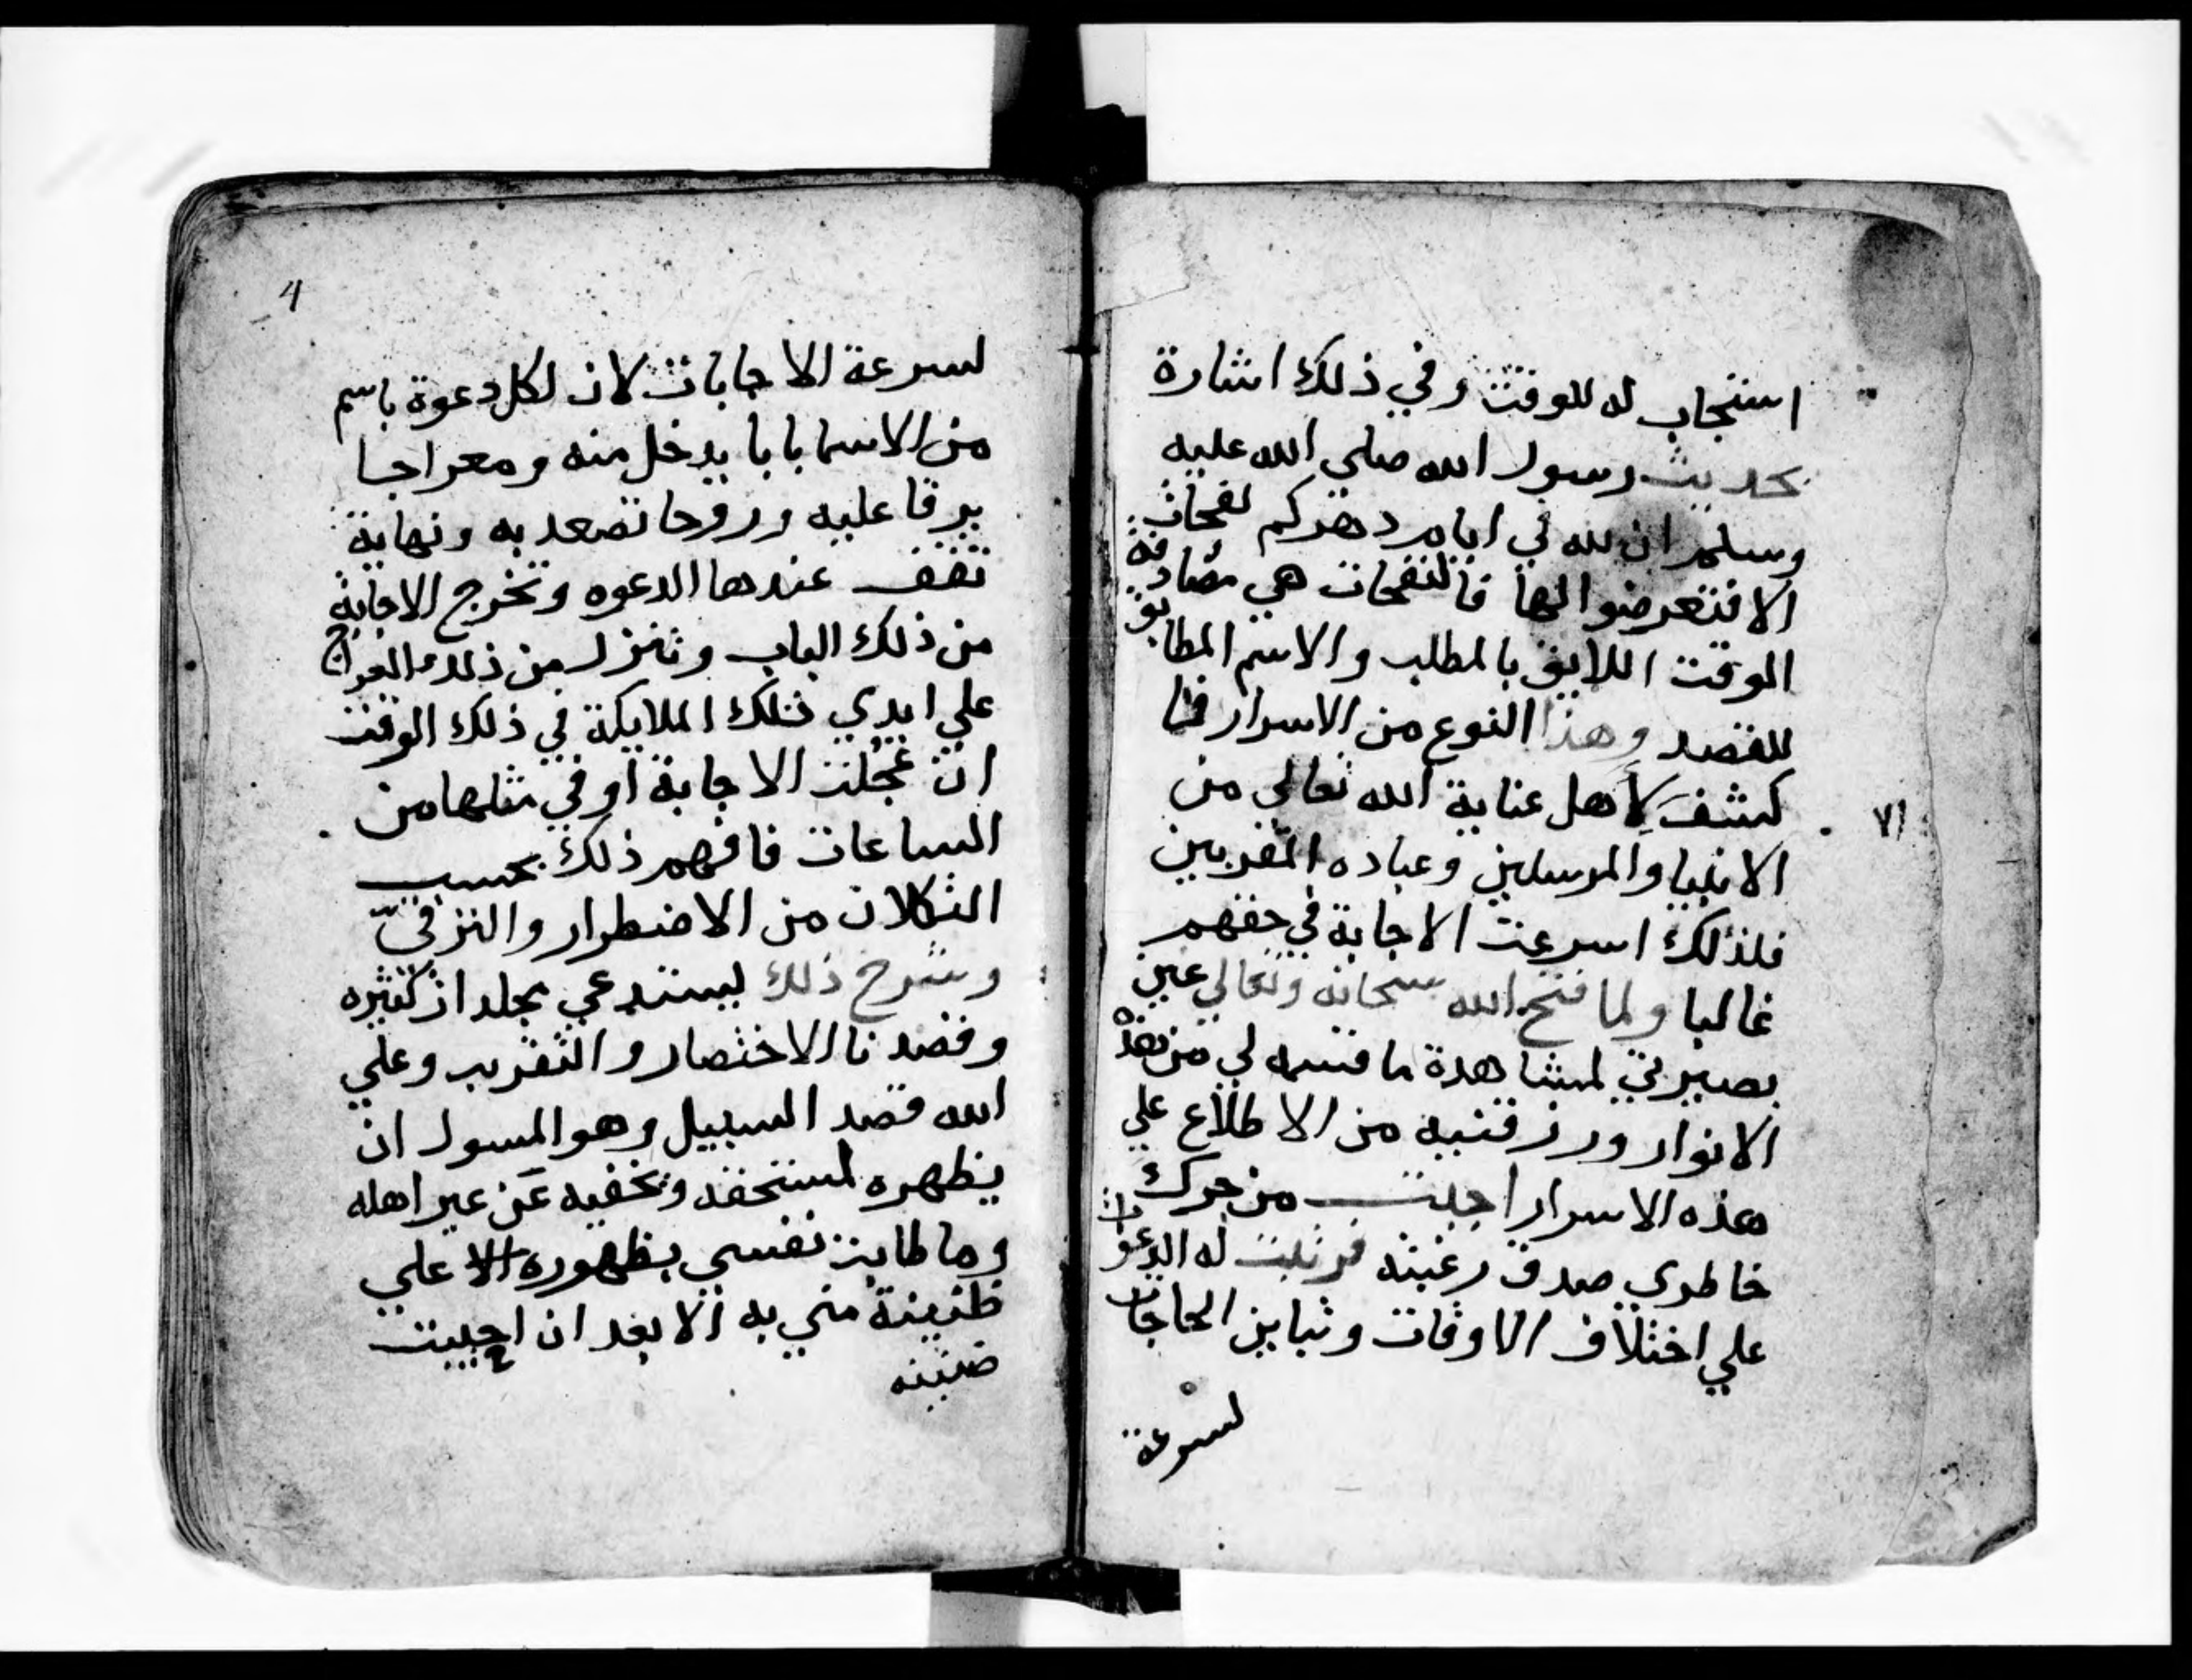 استجاب له للوقت وفي ذلك اشارة
بحديث رسول الله صلى الله عليه
وسلم ان لله في ايام دهركم نفحات
الا فتعرضوا لها فالنفحات هي مصادفة
الوقت اللايق بالمطلب والاسم المطابق
للقصد وهذا النوع من الاسرار
كشف لأهل عناية الله تعالي من
الانبيا والمرسلين وعباده المقربين
فلذلك اسرعت الاجابة في حقهم
غالبا ولما فتح الله سبحانه وتعالي عين
بصيرتي لمشاهدة ما قسمه لي من هذه
الانوار ورزقنيه من الاطلاع علي
هذه الاسرار اجبت من حرك
خاطري صدق رغبته فرتبت له الدعوات
علي اختلاف الاوقات وتباين الحاجات
لسرعة
٧١
4
لسرعة الاجابات لان لكل دعوة باسم
من الاسما بابا يدخل منه ومعراجا
يرقا عليه وروحا تصعد به ونهاية
تقف عندها الدعوه وتخرج الاجابة
من ذلك الباب وتنزل من ذلك المعراج
علي ايدي تلك الملايكة في ذلك الوقت
ان عجلت الاجابة او في مثلها من
الساعات فافهم ذلك بحسب
من الاضطرار والترقي
وشرح ذلك يستدعي مجلدات كثيره
وقصدنا الاختصار والتقريب وعلي
الله قصد السبيل وهو المسول ان
يظهره لمستحقه ويخفيه عن غير اهله
وما طابت نفسي بظهوره الا علي
ظنينة مني به الا بعد ان اجيبت
ضنينه